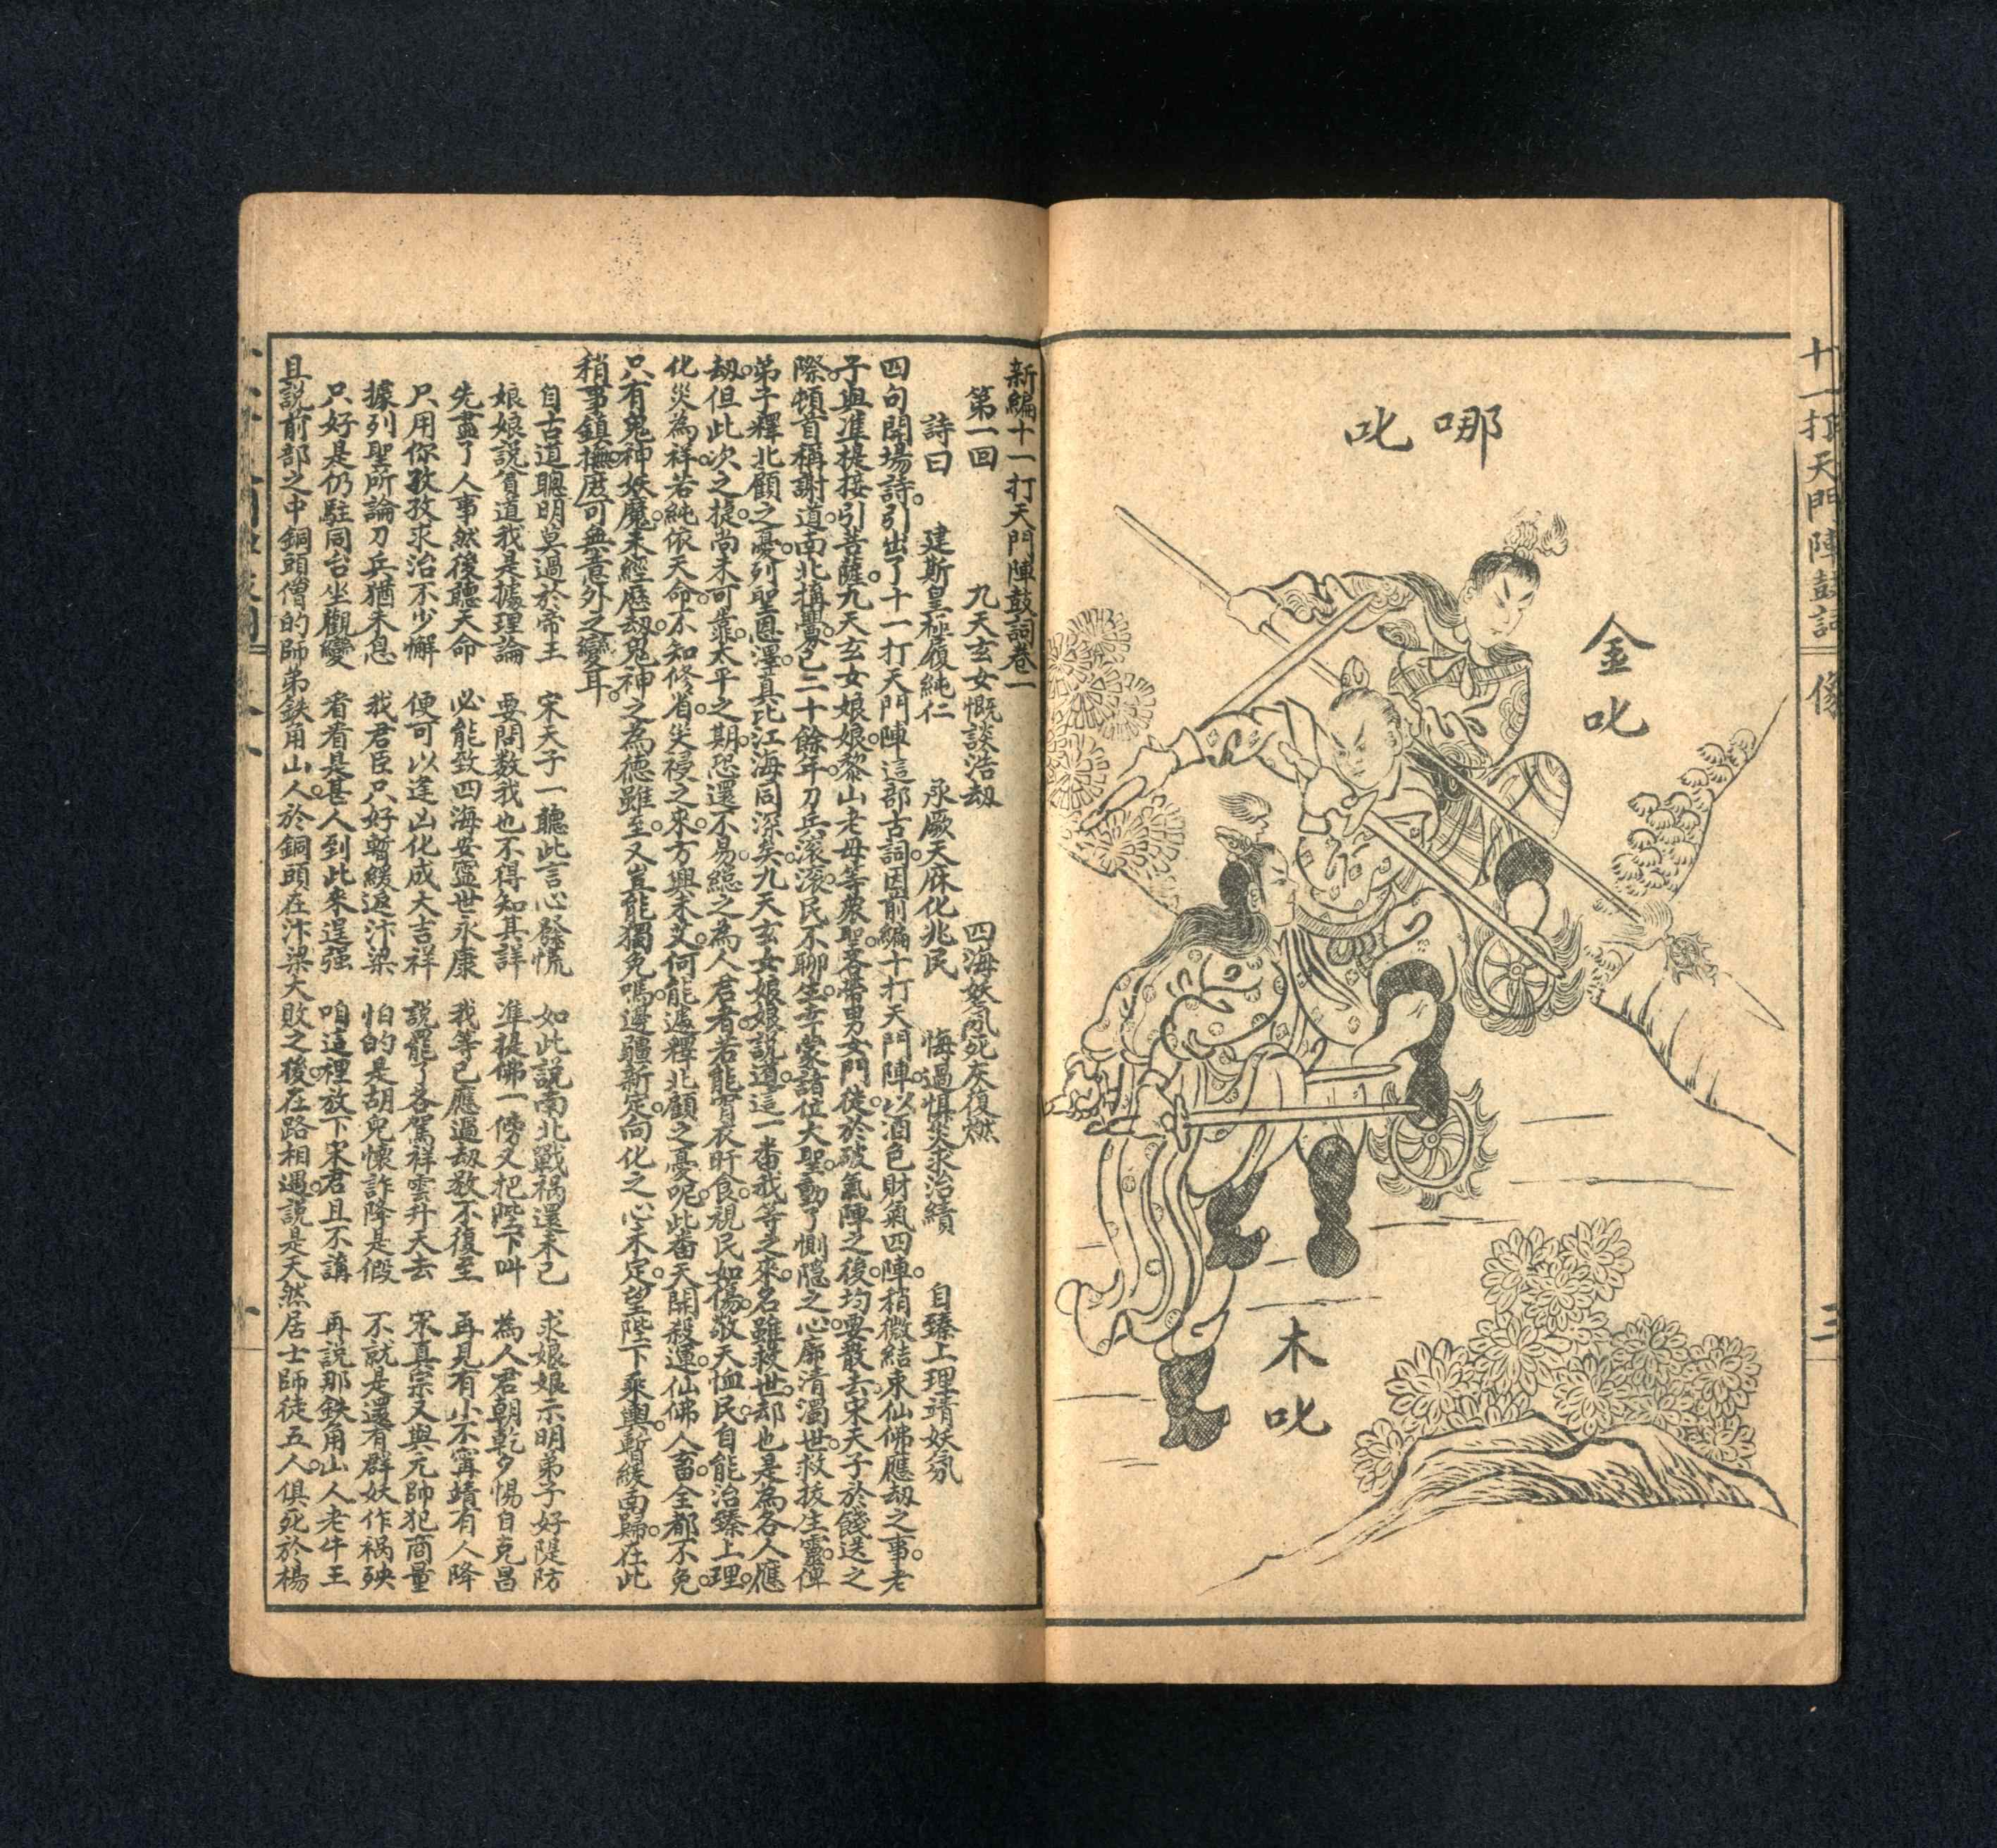 十一打天門陣鼓詞
像
三
哪吒
金吒
木吒
新編十一打天門陣鼓詞卷一
第一回 九天玄女慨談浩劫 四海妖氛死灰復燃
詩曰 建斯皇極履純仁 承厥天庥化兆民 悔過懼災求治績 自臻上理靖妖氛
四句開場詩。引出了十一打天門陣這部古詞因前編十打天門陣。以酒色財氣四陣。稍微結束仙佛應劫之事。老
子與準提接引菩薩。九天玄女娘娘。黎山老母等衆聖。各帶男女門徒。於破氣陣之後。均要散去宋天子於餞送之
際頓首稱謝道。南北搆釁。已二十餘年。刀兵滚滚。民不聊生。幸蒙諸位大聖。動了惻隱之心。廓清濁世。救拔生靈。俾
弟子釋北顧之憂。列聖恩澤。真比江海同深矣。九天玄女娘娘說道。這一番我等之來。名雖救世。却也是為各人應
劫。但此次之捷。尚未可靠。太平之期。恐還不易。總之為人君者。若能宵衣旰食。視民如傷。敬天恤民。自能治臻上理。
化災為祥。若純依天命。不知修省。災祲之來。方興未艾。何能遽釋北顧之憂呢。此番天開殺運。仙佛人畜。全都不免
只有鬼神妖魔。未經應劫。鬼神之為德雖至。又豈能獨免嗎。邊疆新定。向化之心未定。望陛下乘輿。暫緩南歸。在此
稍事鎮撫。庶可無意外之變耳。
自古道聰明莫過於帝王 宋天子一聽此言心發慌 如此說南北戰禍還未已 求娘娘示明弟子好隄防
娘娘說貧道我是據理論 要問数我也不得知其詳 準提佛一傍又把陛下叫 為人君朝乾夕惕自克昌
先盡了人事然後聽天命 必能致四海安寧世永康 我等已應過劫数不復至 再見有山不甯靖有人降
只用你孜孜求治不少懈 便可以逢凶化成大吉祥 說罷了各駕祥雲升天去 宋真宗又與元帥犯商量
據列聖所論刀兵猶未息 我君臣只好暫緩返汴梁 怕的是胡兒懷詐降是假 不就是還有群妖作禍殃
只好是仍駐同台坐觀變 看看是甚人到此來逞强 咱這裡放下宋君且不講 再說那鉄角山人老牛王
且説前部之中銅頭僧的師弟鉄角山人。於銅頭在汴梁大敗之後。在路相遇。說是天然居士師徒五人。俱死於楊